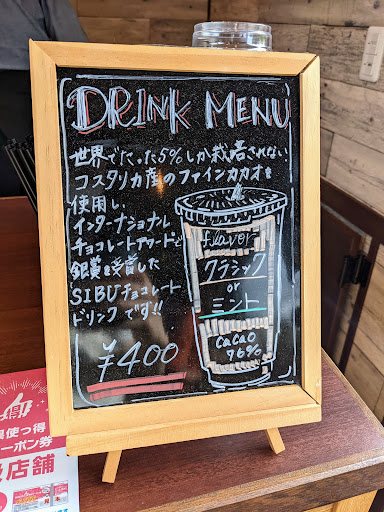 DRINK MENU
世界でたった5%しか栽培されない、
コスタリカ産のファインカカオを
使用し、
インターナショナル
チョコレートアワードで
銀賞を受賞した
SIBUチョコレート
ドリンクです!!
¥400
flavor
クラシック
or
ミント
CaCaO
76%
使っ得
ーポン券
店舗